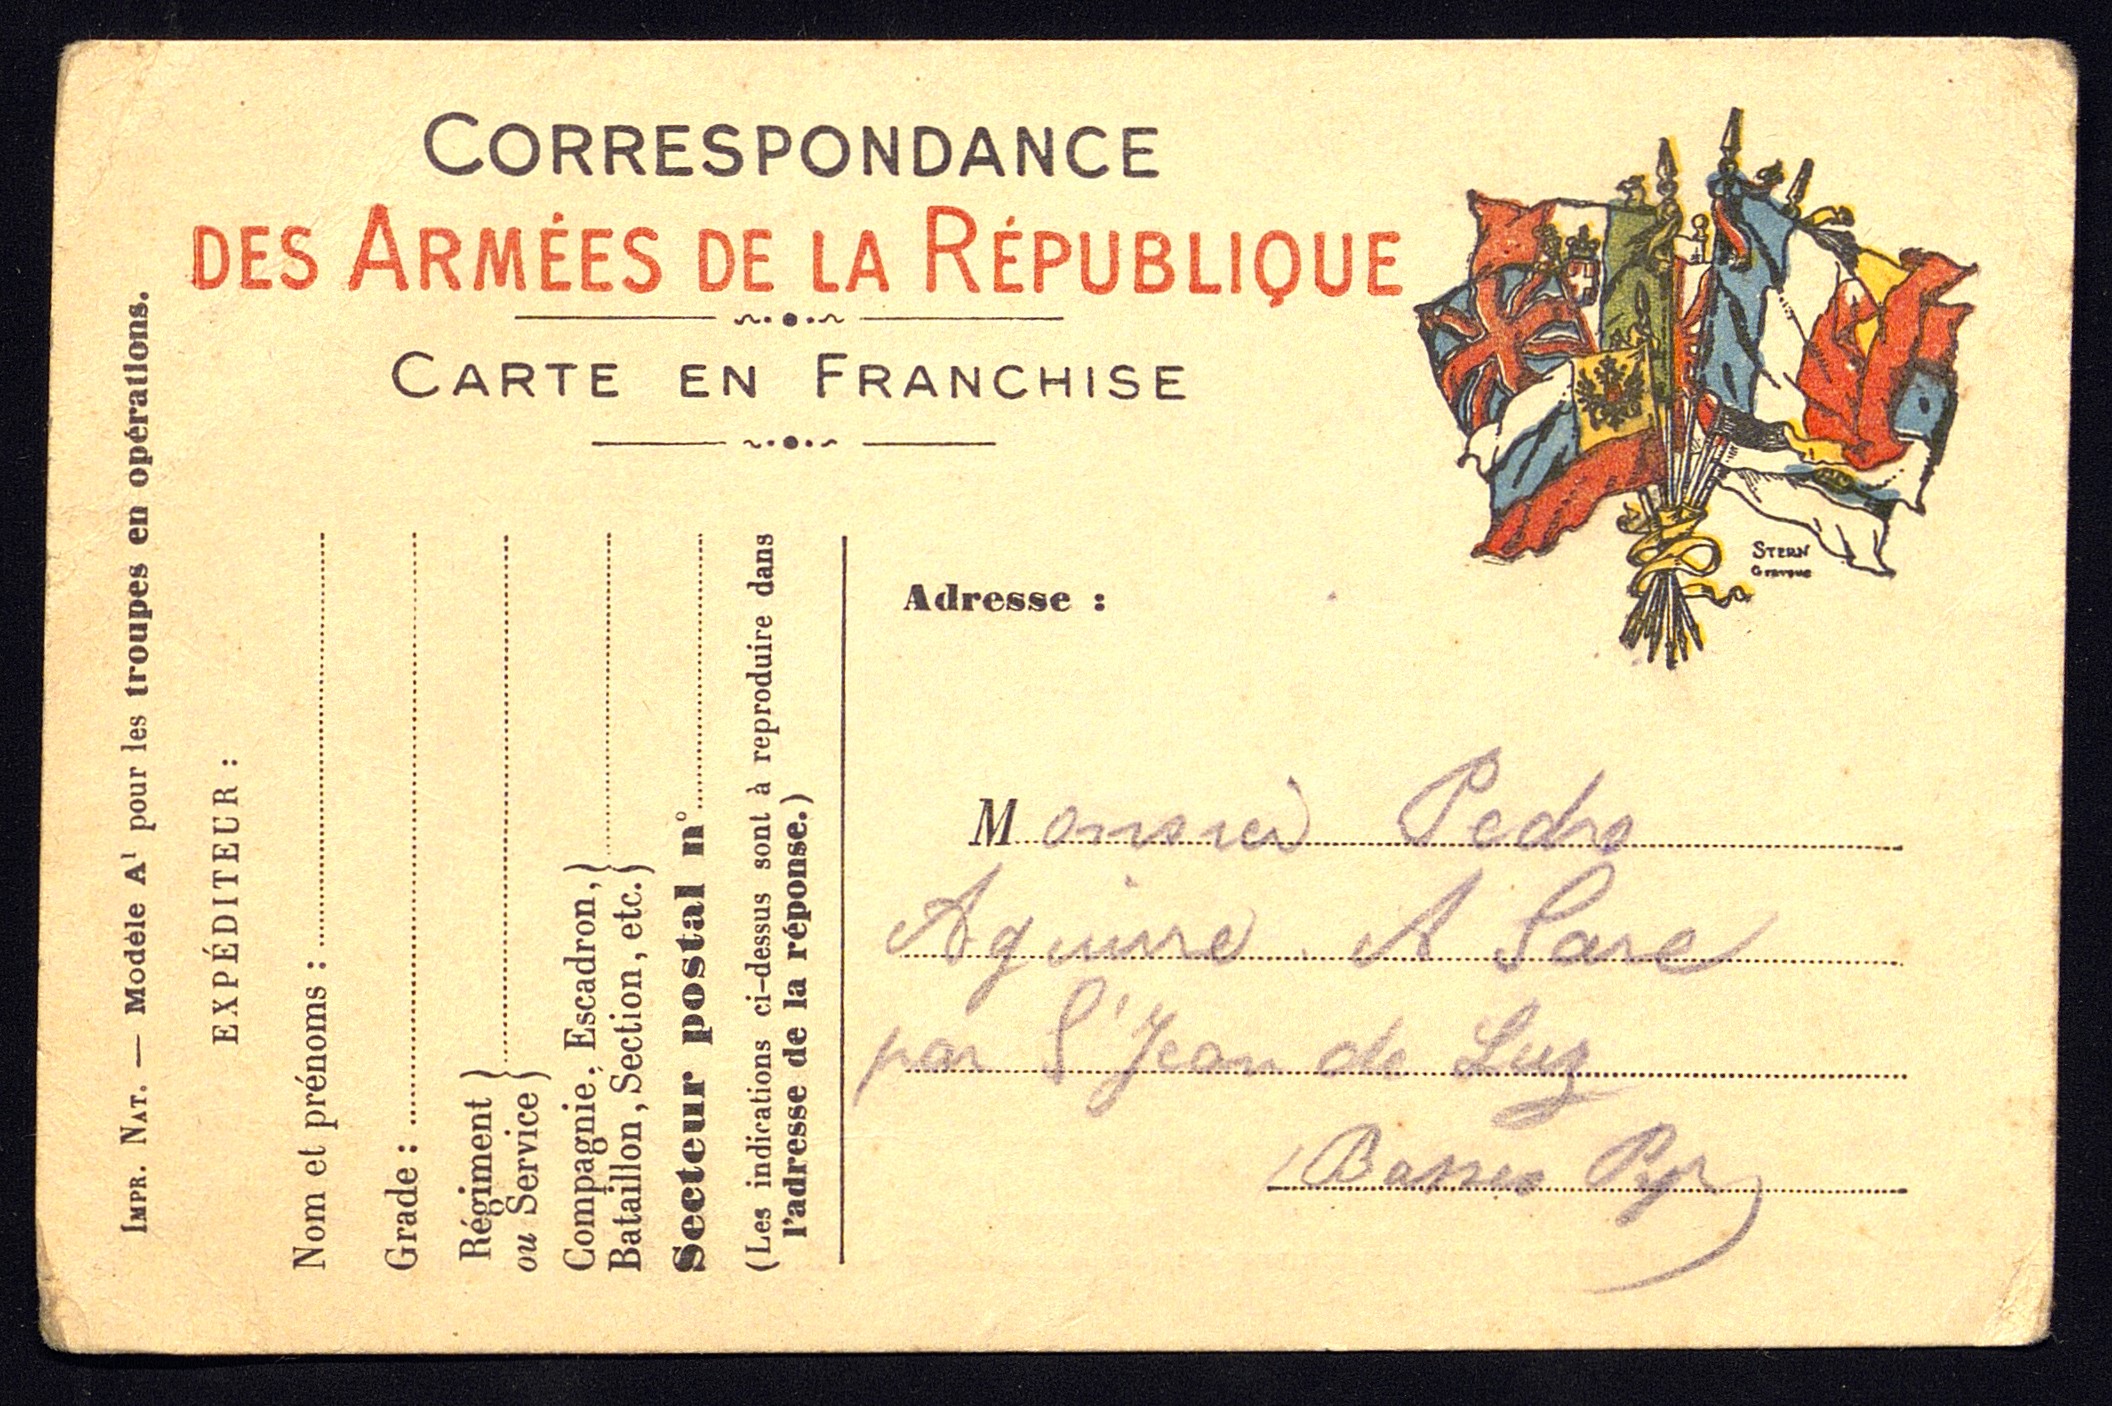 CORRESPONDANCE
DES ARMÉES DE LA RÉPUBLIQUE
CARTE EN FRANCHISE
IMPR. NAT. — Modèle A¹ pour les troupes en opérations.
EXPÉDITEUR :
Nom et prénoms :
Grade :
Régiment
ou Service
Compagnie, Escadron,
Bataillon, Section, etc.
Secteur postal n°
(Les indications ci-dessus sont à reproduire dans
l'adresse de la réponse.)
STERN
Graveur
Adresse :
Monsieur Pedro
Aguirre. A Sare
par St Jean de Luz
Basses Pyr